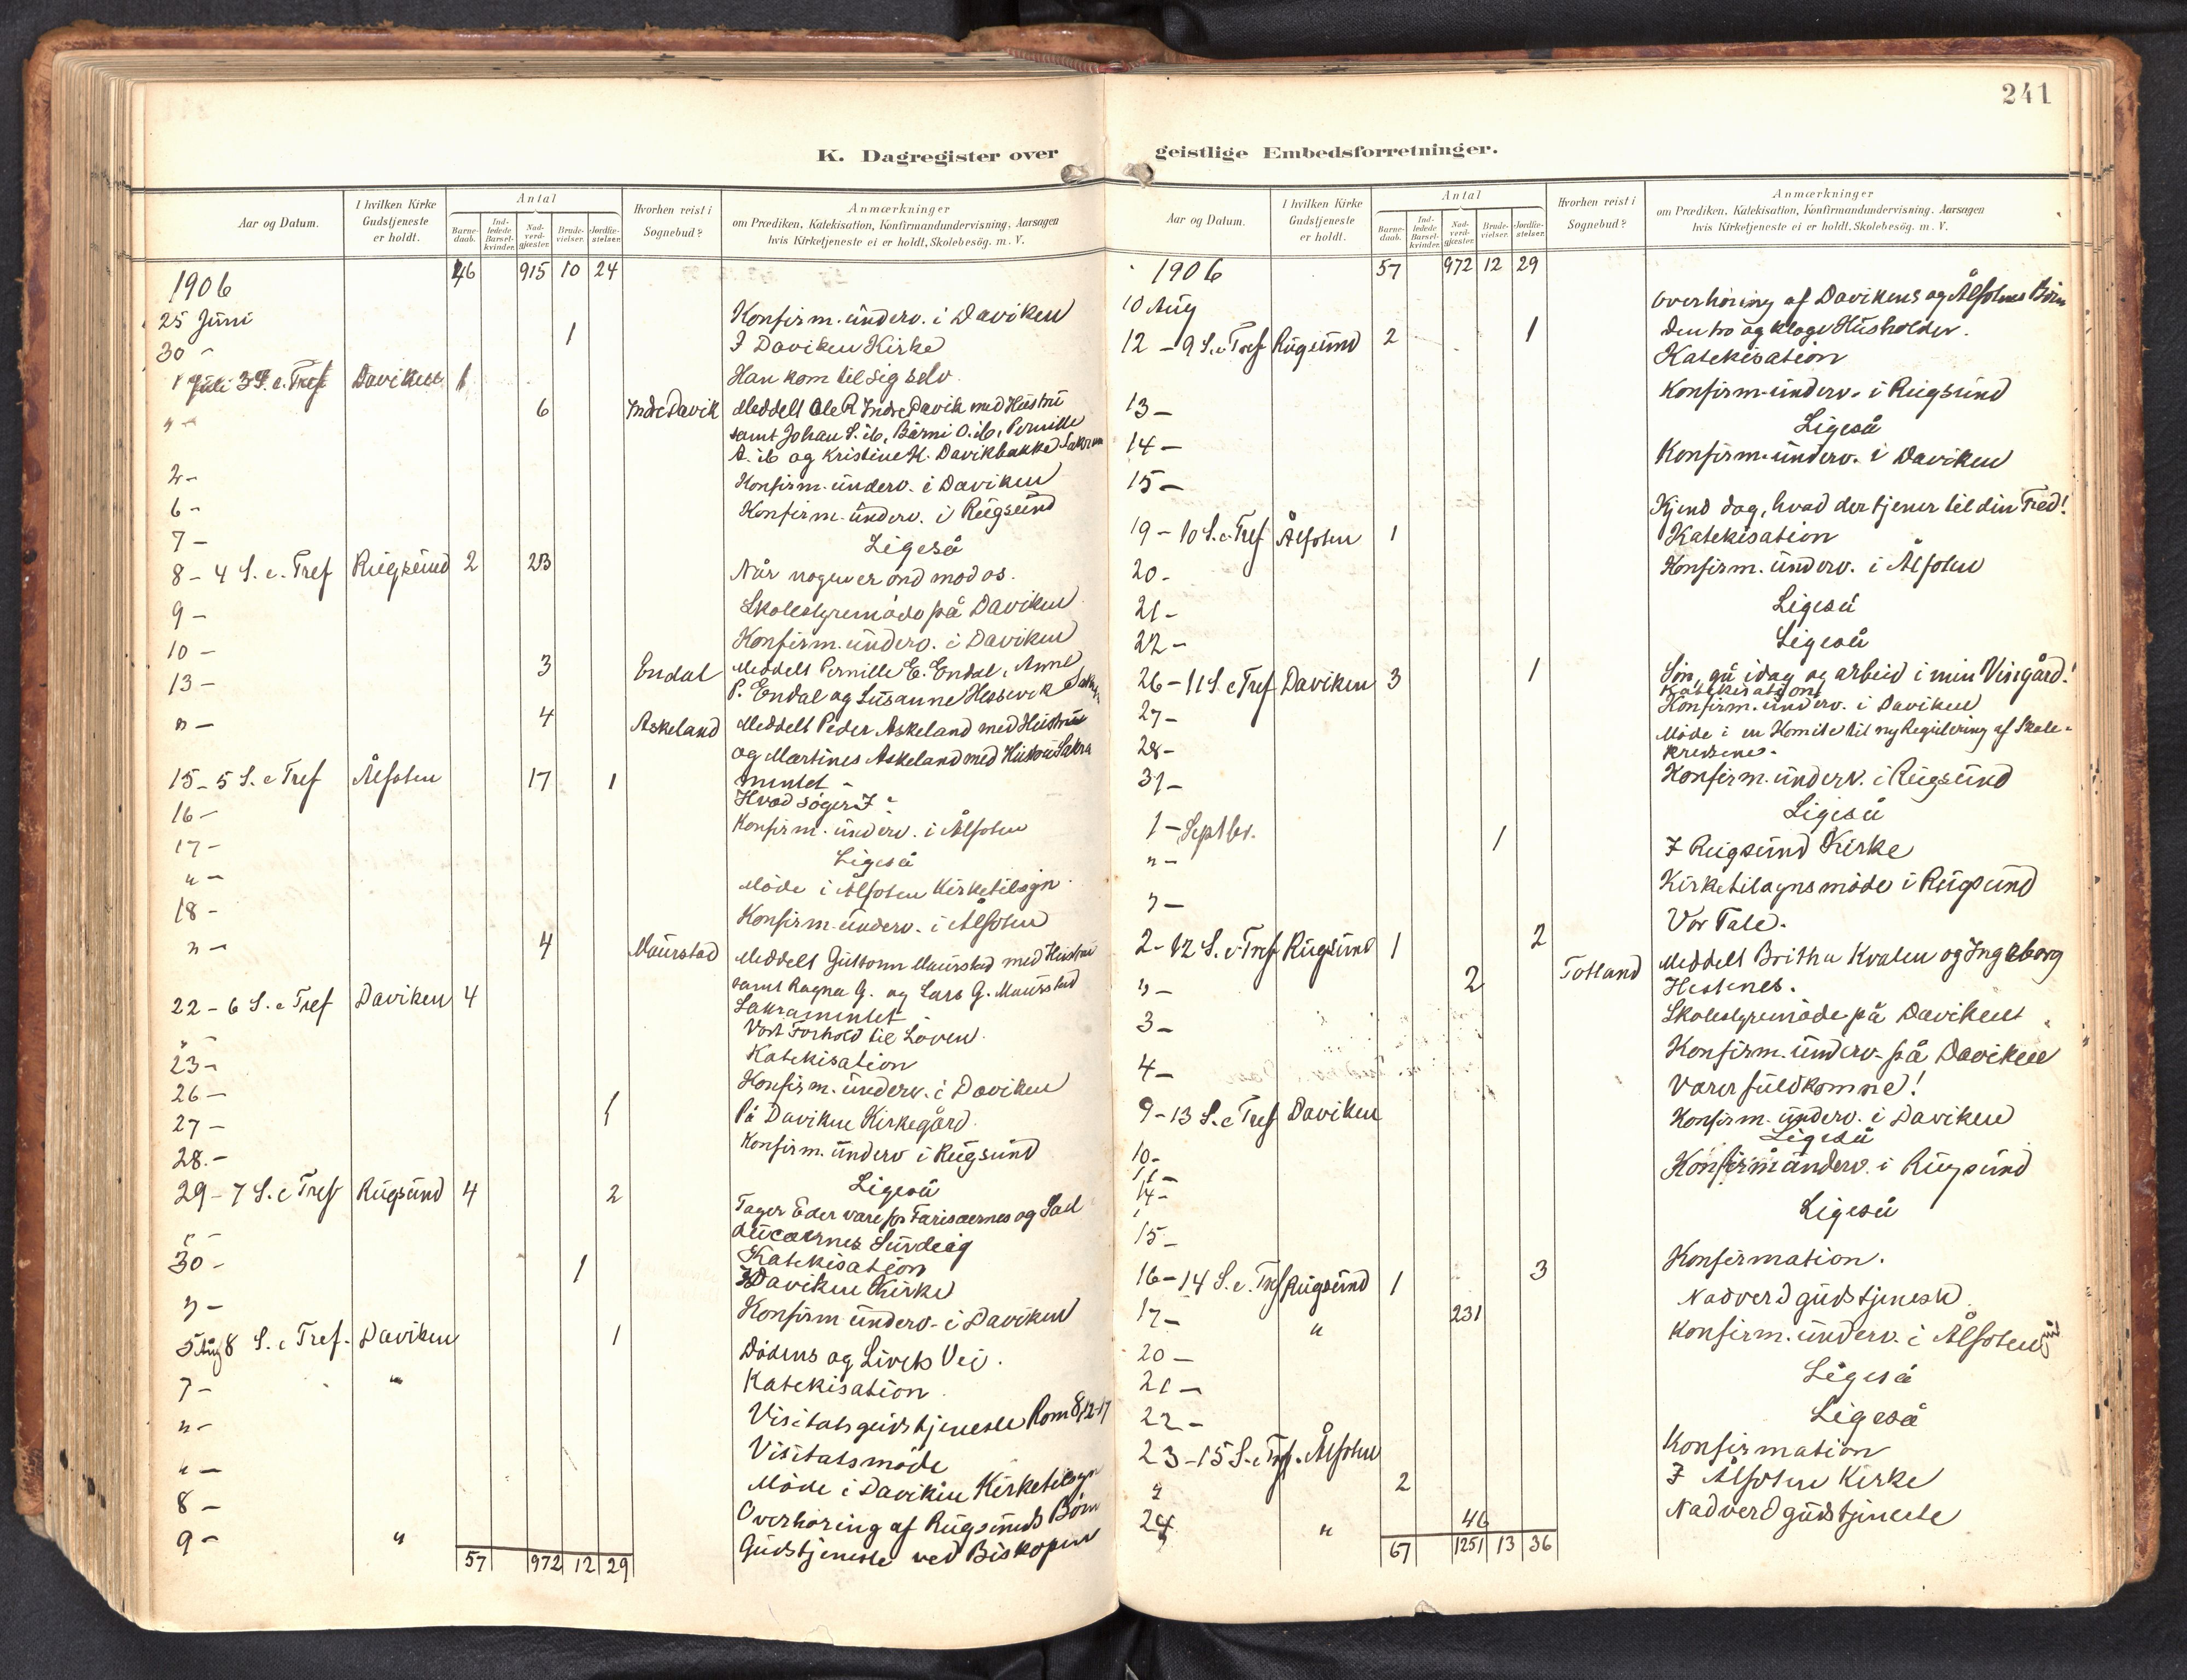 241
K. Dagregister over
Aar og Datum.
I hvilken Kirke
Gudstjeneste
er holdt.
Antal
Barne-
daab.
Ind-
ledede
Barsel-
kvinder.
Nad-
verd-
gjester.
Brude-
vielser.
Jordfæ-
stelser.
Hvorhen reist i
Sognebud?
Anmærkninger
om Prædiken, Katekisation, Konfirmandundervisning, Aarsagen
hvis Kirketjeneste ei er holdt, Skolebesög. m. V.
1906 46 915 10 24
25 Juni Konfirm. underv. i Daviken
30 - 1 I Daviken Kirke
1 Juli 3 S. e. Tref Daviken 1 Han kom til sig selv.
" - 6 Indre Davik Meddelt Ole R Indre Davik med Hustru
samt Johan S. ib, Børni O. ib, Pernille
A. ib og Kristine K. Davikbakke Sakram
2 - Konfirm. underv. i Daviken
6 - Konfirm. underv. i Rugsund
7 - Ligeså
8 - 4 S. e. Tref Rugsund 2 23 Når nogen er ond mod os.
9 - Skolestyremöde på Daviken
10 - Konfirm. underv. i Daviken
13 - 3 Endal Meddelt Pernille E. Endal, Anne
P. Endal og Susanne Hessevik Sakr
" - 4 Askeland Meddelt Peder Askeland med Hustru
og Martines Askeland med Hustru Sakra
mentet -
15 - 5 S. e Tref Ålfoten 17 1 Hvad söger I?
16 - Konfirm. underv. i Ålfoten
17 - Ligeså
" - Möde i Ålfoten Kirketilsyn.
18 - Konfirm. underv. i Ålfoten
" - 4 Maurstad Meddelt Guttorm Maurstad med Hustru
samt Ragna G. og Lars G. Maurstad
Sakramentet
22 - 6 S. e Tref Daviken 4 Vort Forhold til Loven.
" - Katekisation
23 - Konfirm. underv. i Daviken
26 - 1 På Daviken Kirkegård.
27 - Konfirm. underv i Rugsund
28. - Ligeså
29 - 7 S. e Tref Rugsund 4 2 Tager Eder vare for Farisæernes og Sad
ducæernes Surdeig
" - Katekisation
30 - 1 I Daviken Kirke
" - Konfirm. underv. i Daviken
5 Aug 8 S. e Tref. Daviken 1 Dödens og Livets Vei.
Katekisation
7 - " Visitatsgudstjeneste Rom 8,12-17
" - Visitatsmöde
" - Möde i Daviken Kirketilsyn
8 - Overhöring af Rugsunds Börn
9 - " Gudstjeneste ved Biskopen
57 972 12 29
geistlige Embedsforretninger.
Aar og Datum.
I hvilken Kirke
Gudstjeneste
er holdt.
Antal
Barne-
daab.
Ind-
ledede
Barsel-
kvinder.
Nad-
verd-
gjester.
Brude-
vielser.
Jordfæ-
stelser.
Hvorhen reist i
Sognebud?
Anmærkninger
om Prædiken, Katekisation, Konfirmandundervisning, Aarsagen
hvis Kirketjeneste ei er holdt, Skolebesög. m. V.
1906 57 972 12 29
10 Aug Overhöring af Davikens og Ålfotens Börn
12 - 9 S. e Tref Rugsund 2 1 Den tro og kloge Husholder.
Katekisation
13 - Konfirm. underv. i Rugsund
14 - Ligeså
15 - Konfirm. underv. i Daviken
19 - 10 S. e. Tref Ålfoten 1 Kjend dog, hvad der tjener til din Fred!
Katekisation
20 - Konfirm. underv. i Ålfoten
21 - Ligeså
22 - Ligeså
26 - 11 S. e Tref Daviken 3 1 Sön, gå idag og arbeid i min Vingård!
Katekisation
27 - Konfirm. underv. i Daviken
28 - Möde i en Komite til ny Regulering af Skole-
kredsene.
31 - Konfirm. underv. i Rugsund
1 - Septbr. Ligeså
" - 1 I Rugsund Kirke
" - Kirketilsynsmöde i Rugsund
2 - 12 S. e Tref Rugsund 1 2 Vor Tale.
" - 2 Totland Meddelt Britha Kvalen og Ingeborg
Hestenes.
3 - Skolestyremöde på Daviken
4 - Konfirm. underv. på Daviken
9 - 13 S. e Tref Daviken Værer fuldkomne!
10 - Konfirm. underv. i Daviken
11 - Ligeså
14 - Konfirm underv. i Rugsund
15 - Ligeså
16 - 14 S. e. Tref Rugsund 1 3 Konfirmation.
17 - " 231 Nadverdgudstjeneste
20 - Konfirm. underv. i Ålfoten
21 - Ligeså
22 - Ligeså
23 - 15 S. e Tref. Ålfoten Konfirmation
" 2 I Ålfoten Kirke
24 " 46 Nadverdgudstjeneste
67 1251 13 36